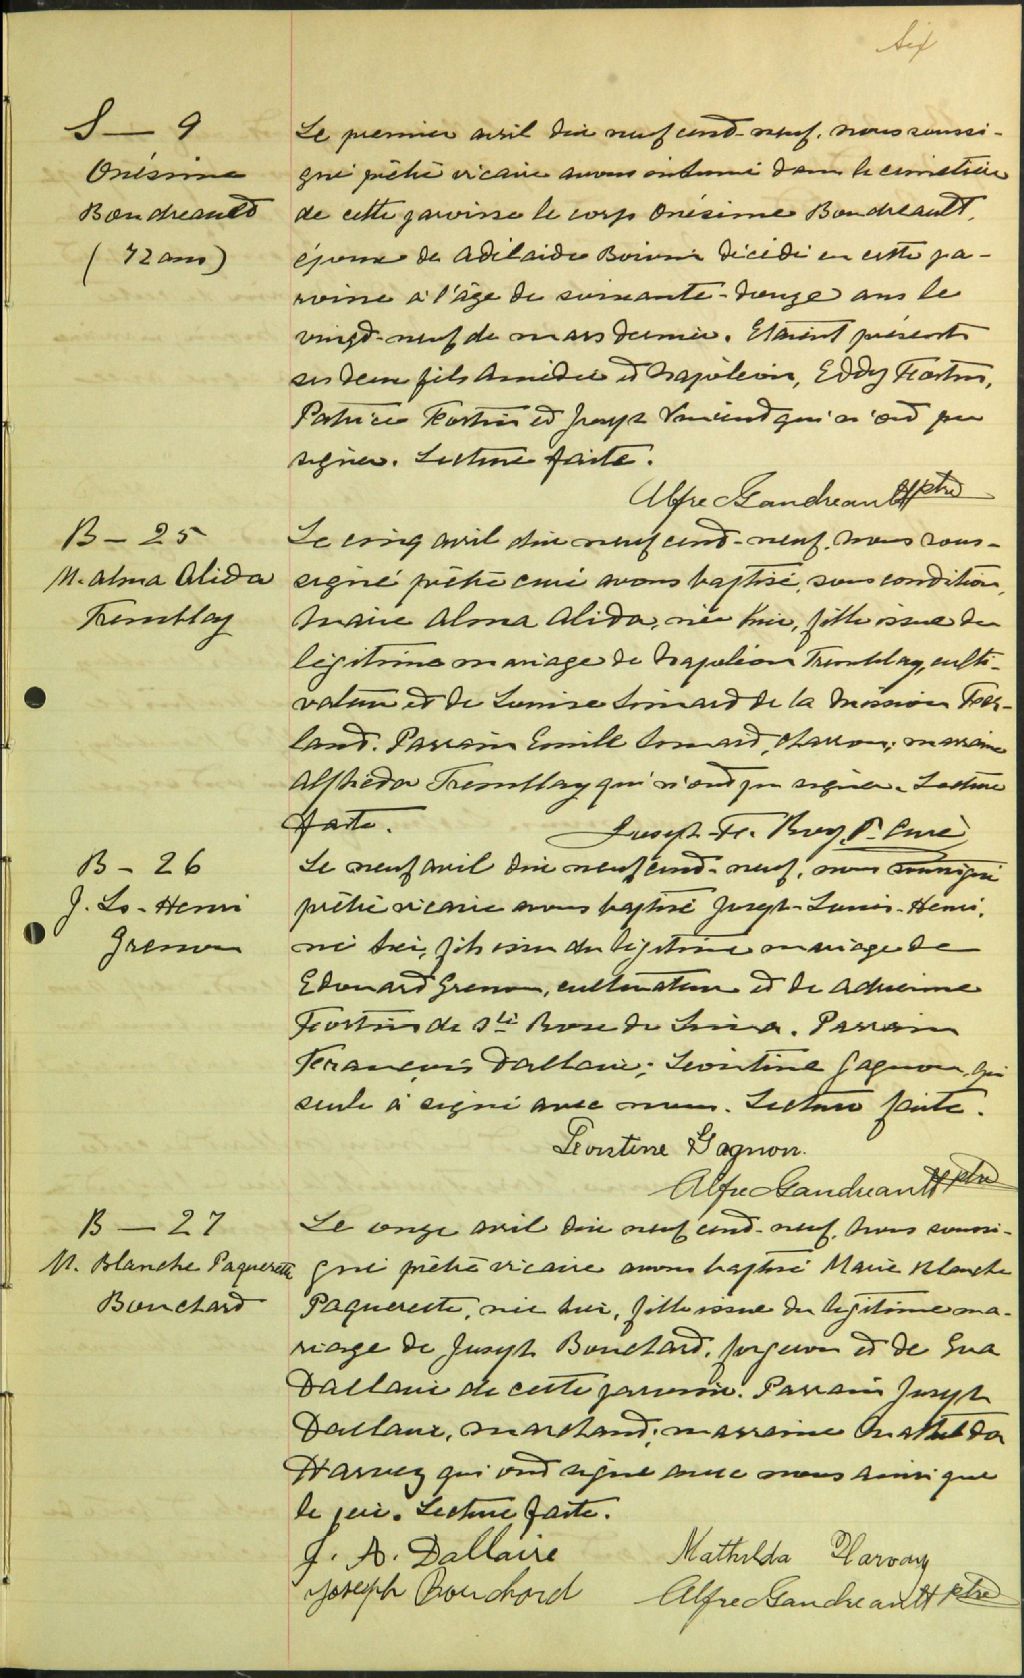 Six
S — 9
Onésime
Boudreault
(72 ans)
Le premier avril dix neuf cent-neuf, nous soussi-
gné prêtre vicaire avons inhumé dans le cimetière
de cette paroisse le corps Onésime Boudreault,
époux de Adélaïde Boivin décédé en cette pa-
roisse à l'âge de soixante-douze ans le
vingt-neuf de mars dernier. Etaient présents
ses deux fils Amédée et Napoléon, Eddy Fortin,
Patrice Fortin et Joseph Vincent qui n'ont pu
signer. Lecture faite.
Alfred Gaudreault ptre
B — 25
M. Alma Alida
Tremblay
Le cinq avril dix neuf cent-neuf, nous sous-
signé prêtre curé avons baptisé, sous condition,
Marie Alma Alida, née hier, fille issue du
légitime mariage de Napoléon Tremblay, culti-
vateur et de Louise Simard de la Mission Fer-
land. Parrain Emile Simard, charron; marraine
Alfréda Tremblay qui n'ont pu signer. Lecture
faite.
Joseph-F. Roy, P. Curé
B — 26
J. Ls-Henri
Grenon
Le neuf avril dix neuf cent-neuf, nous soussigné
prêtre vicaire avons baptisé Joseph-Louis-Henri,
né hier, fils issu du légitime mariage de
Edouard Grenon, cultivateur et de Adrienne
Fortin de Ste Rose de Lima. Parrain
François Dallaire; Léontine Gagnon, qui
seule a signé avec nous. Lecture faite.
Léontine Gagnon
Alfred Gaudreault ptre
B — 27
M. Blanche Paquerette
Bouchard
Le onze avril dix neuf cent-neuf, nous soussi-
gné prêtre vicaire avons baptisé Marie Blanche
Paquerette, née hier, fille issue du légitime ma-
riage de Joseph Bouchard, forgeron et de Eva
Dallaire de cette paroisse. Parrain Joseph
Dallaire, marchand; marraine Mathilda
Harvey qui ont signé avec nous ainsi que
le père. Lecture faite.
J. A. Dallaire
Mathilda Harvay
Joseph Bouchard
Alfred Gaudreault ptre